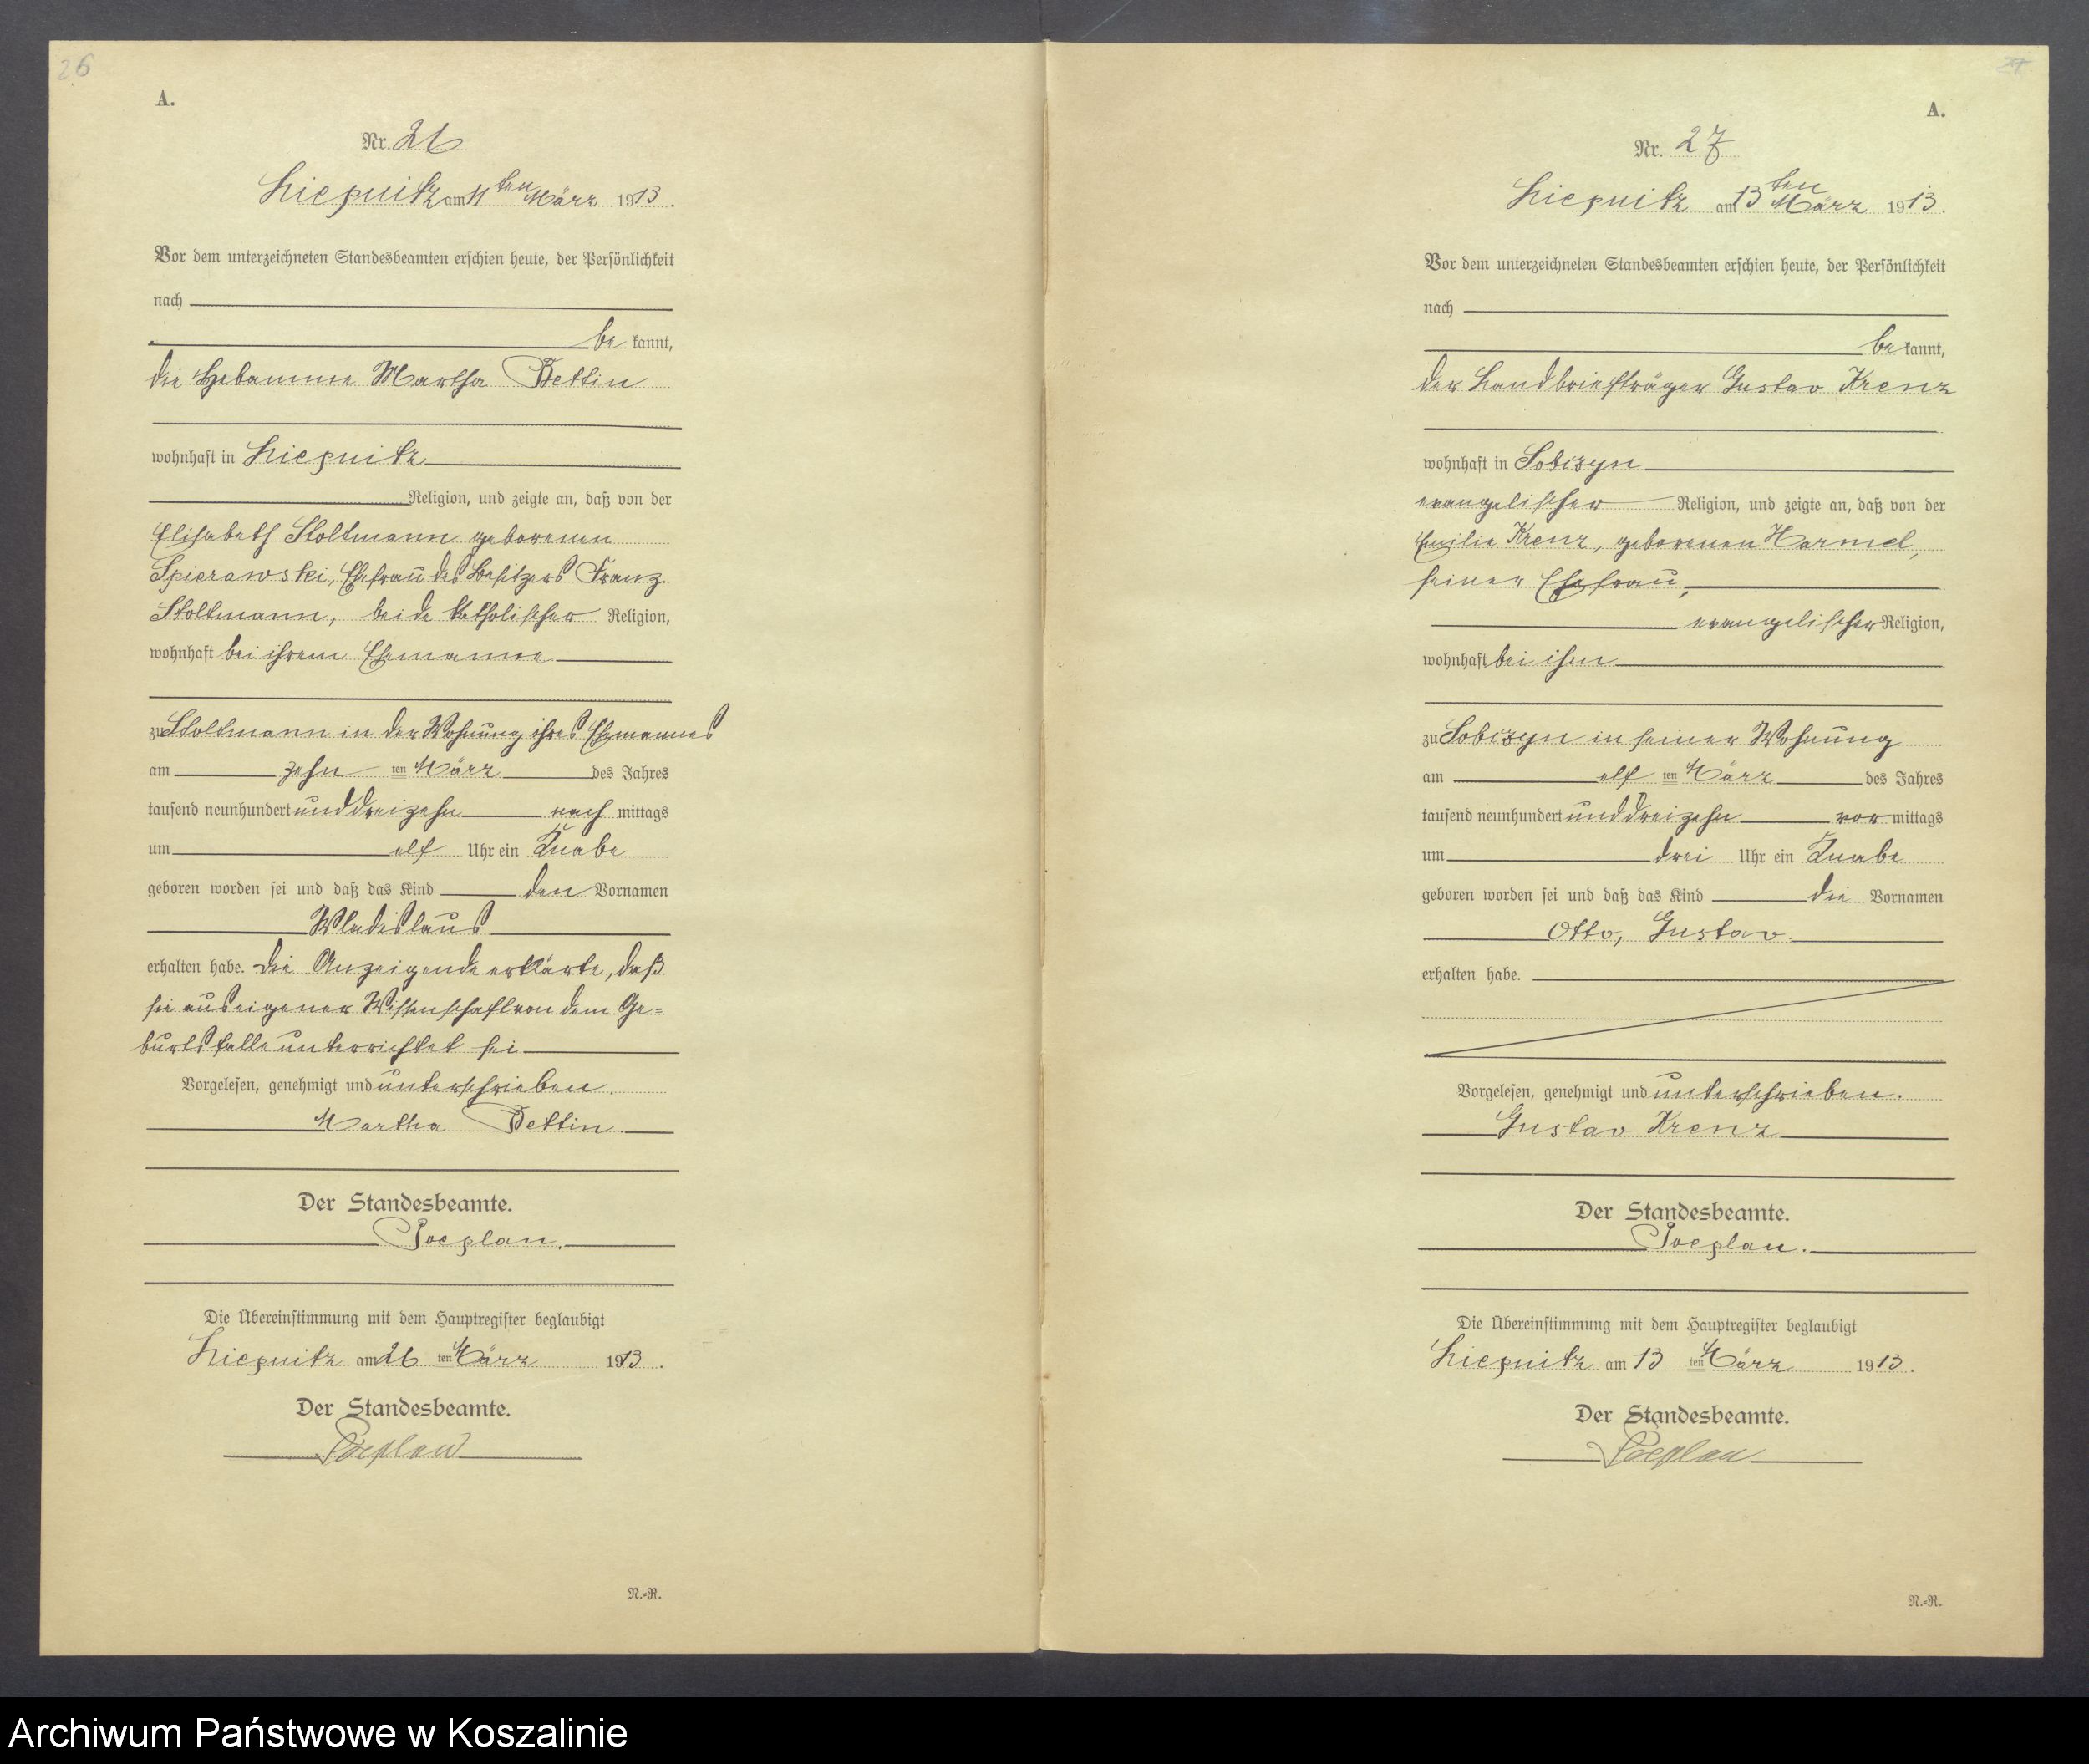 26
A.
Nr. 26
Liepnitz am 11ten März 1913.
Vor dem unterzeichneten Standesbeamten erschien heute, der Persönlichkeit
nach
be kannt,
die Hebamme Martha Dettin
wohnhaft in Liepnitz
Religion, und zeigte an, daß von der
Elisabeth Stoltmann geborenen
Spierawski, Ehefrau des Besitzers Franz
Stoltmann, beide katholischer Religion,
wohnhaft bei ihrem Ehemanne
zu Stoltmann in der Wohnung ihres Ehemannes
am zehn ten März des Jahres
tausend neunhundert unddreizehn nach mittags
um elf Uhr ein Knabe
geboren worden sei und daß das Kind den Vornamen
Wladislaus
erhalten habe. Die Anzeigende erklärte, daß
sie aus eigener Wissenschaft von dem Ge=
burtsfalle unterrichtet sei
Vorgelesen, genehmigt und unterschrieben.
Martha Dettin.
Der Standesbeamte.
Poeplau.
Die Übereinstimmung mit dem Hauptregister beglaubigt
Liepnitz am 26 ten März 1913.
Der Standesbeamte.
Poeplau
N.=R.
27
A.
Nr. 27
Liepnitz am 13ten März 1913.
Vor dem unterzeichneten Standesbeamten erschien heute, der Persönlichkeit
nach
be kannt,
der Landbriefträger Gustav Krenz
wohnhaft in Sobczyn
evangelischer Religion, und zeigte an, daß von der
Emilie Krenz, geborenen Harmel,
seiner Ehefrau,
evangelischer Religion,
wohnhaft bei ihm
zu Sobczyn in seiner Wohnung
am elf ten März des Jahres
tausend neunhundert unddreizehn vor mittags
um drei Uhr ein Knabe
geboren worden sei und daß das Kind die Vornamen
Otto, Gustav
erhalten habe.
Vorgelesen, genehmigt und unterschrieben.
Gustav Krenz
Der Standesbeamte.
Poeplau.
Die Übereinstimmung mit dem Hauptregister beglaubigt
Liepnitz am 13 ten März 1913.
Der Standesbeamte.
Poeplau
N.=R.
Archiwum Państwowe w Koszalinie